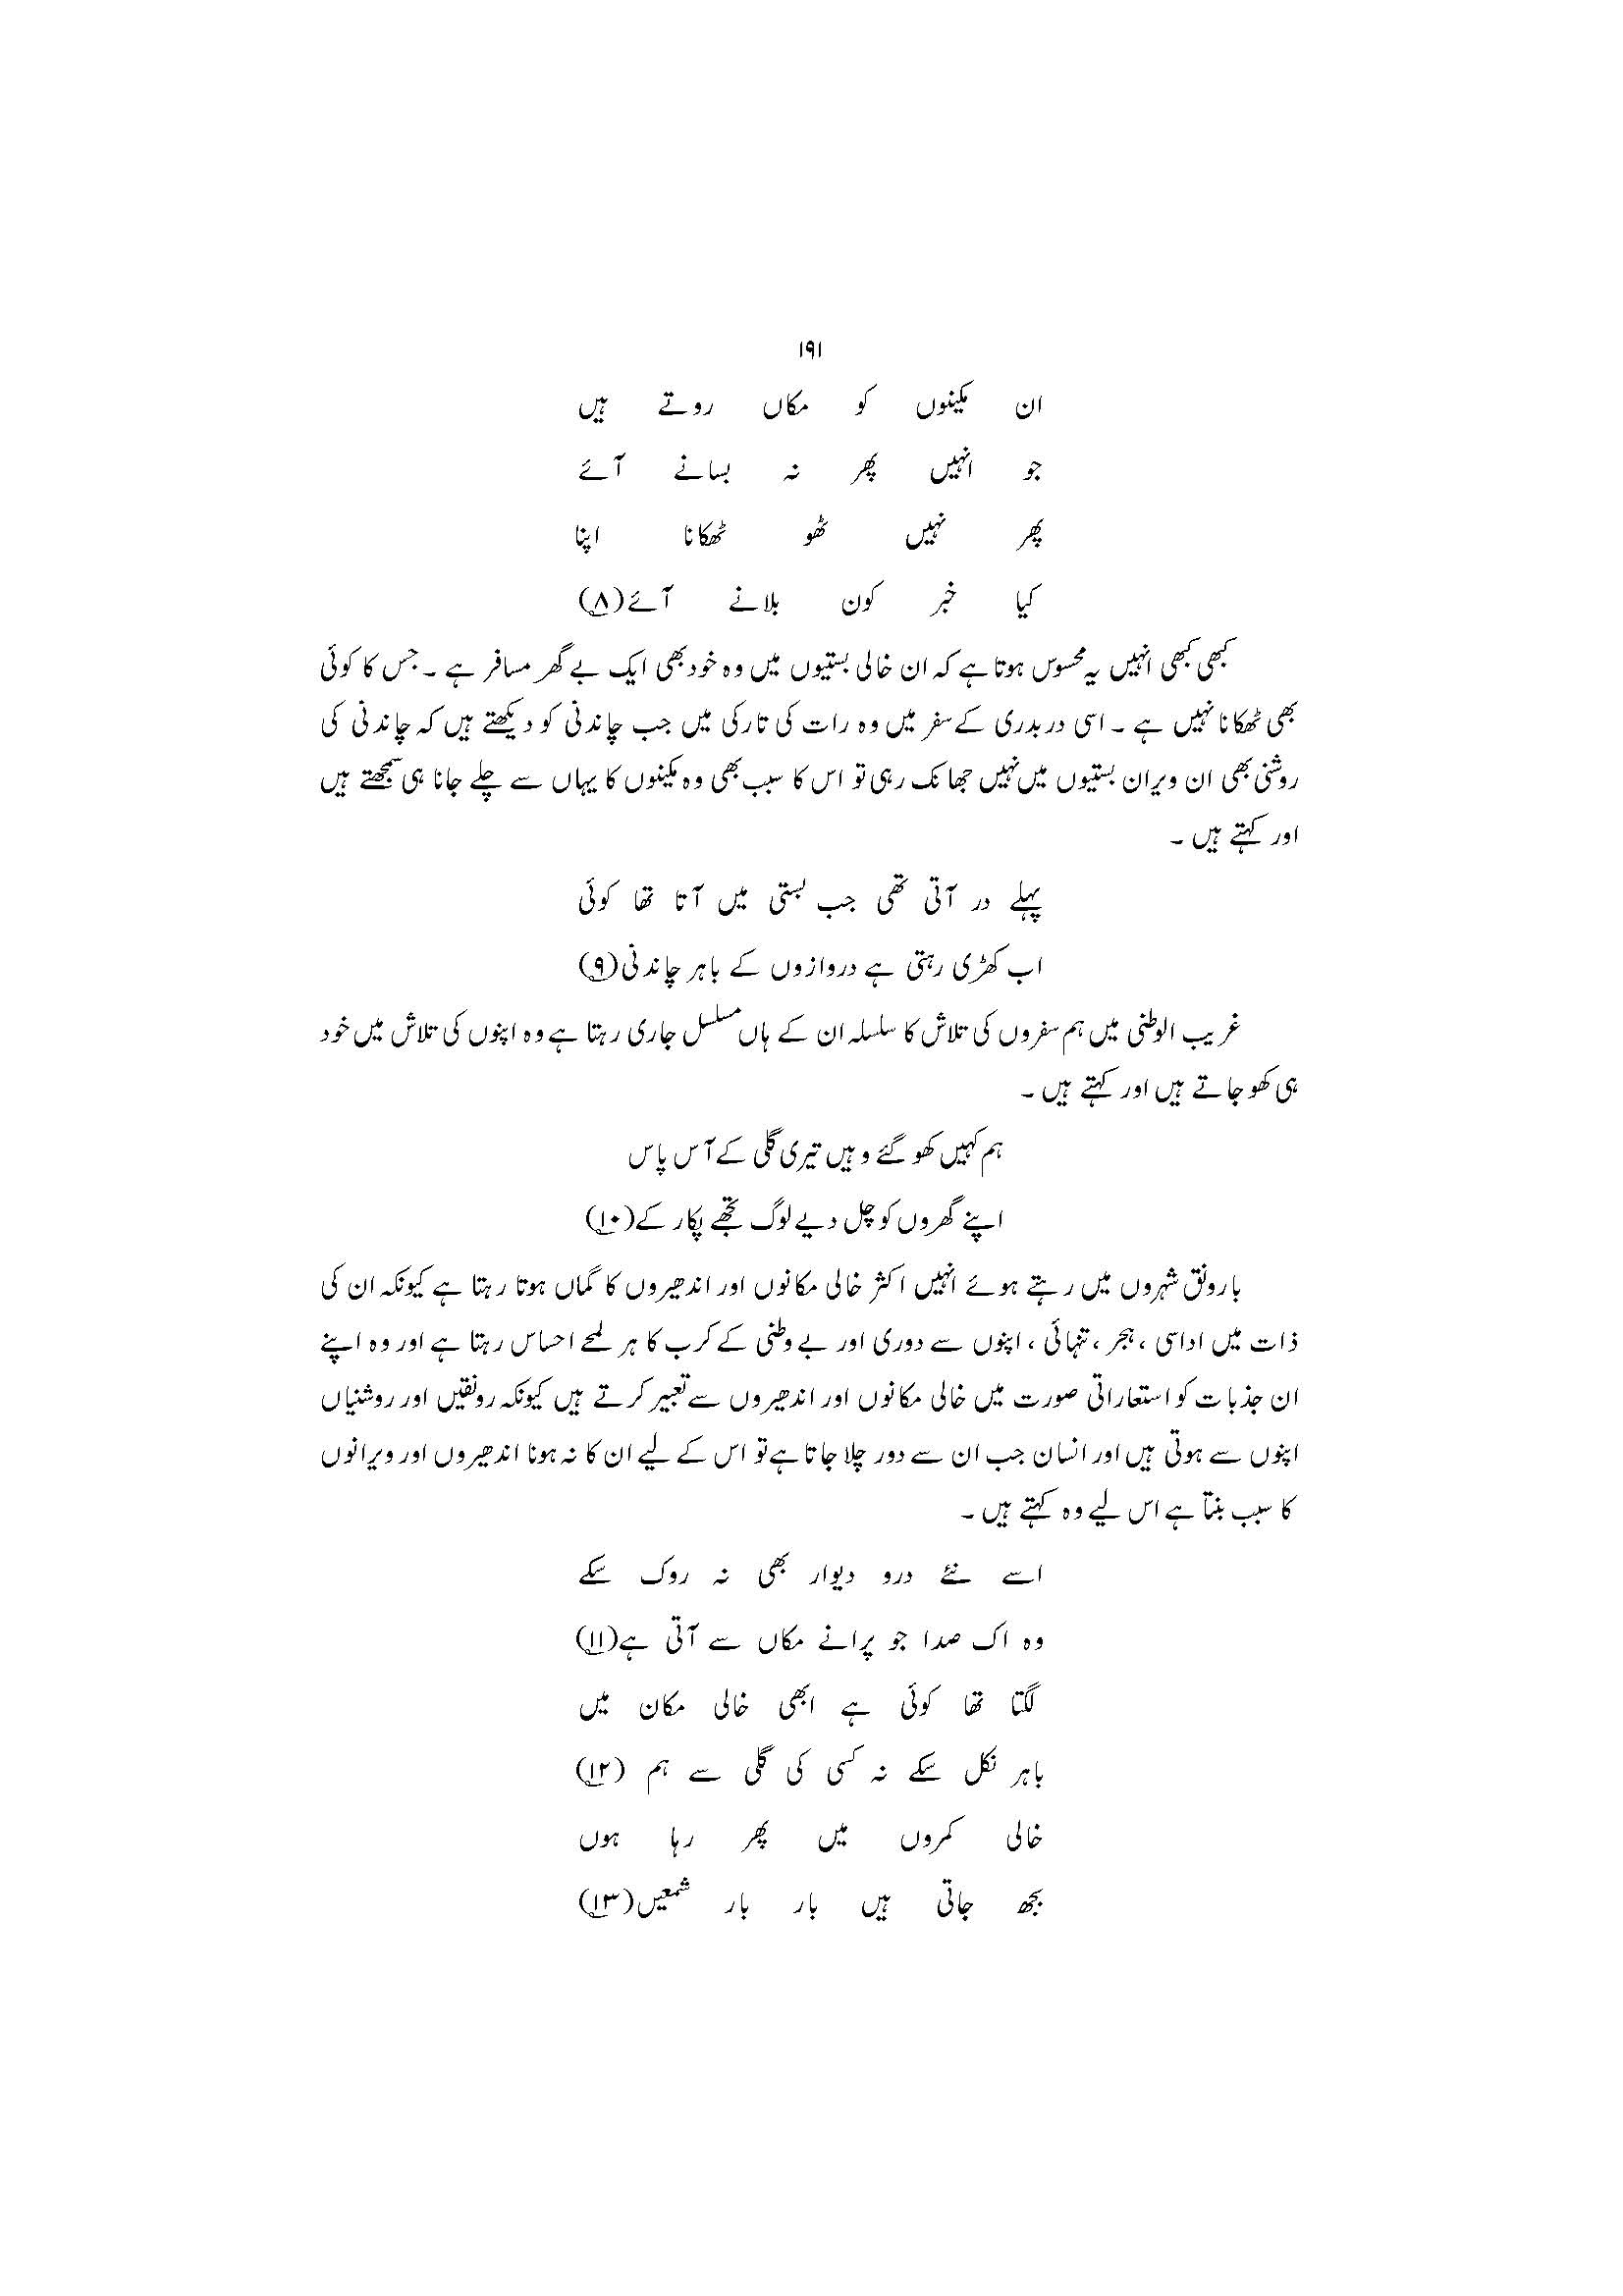 ۱۹۱
ان مکینوں کو مکاں روتے ہیں
جو انہیں پھر نہ بسانے آئے
پھر نہیں ٹھو ٹھکانا اپنا
کیا خبر کون بلانے آئے(۸)
کبھی کبھی انہیں یہ محسوس ہوتا ہے کہ ان خالی بستیوں میں وہ خود بھی ایک بے گھر مسافر ہے ۔ جس کا کوئی
بھی ٹھکانا نہیں ہے ۔ اسی دربدری کے سفر میں وہ رات کی تارکی میں جب چاندنی کو دیکھتے ہیں کہ چاندنی کی
روشنی بھی ان ویران بستیوں میں نہیں جھانک رہی تو اس کا سبب بھی وہ مکینوں کا یہاں سے چلے جانا ہی سمجھتے ہیں
اور کہتے ہیں ۔
پہلے در آتی تھی جب بستی میں آتا تھا کوئی
اب کھڑی رہتی ہے دروازوں کے باہر چاندنی(۹)
غریب الوطنی میں ہم سفروں کی تلاش کا سلسلہ ان کے ہاں مسلسل جاری رہتا ہے وہ اپنوں کی تلاش میں خود
ہی کھو جاتے ہیں اور کہتے ہیں ۔
ہم کہیں کھو گئے وہیں تیری گلی کے آس پاس
اپنے گھروں کو چل دیے لوگ تجھے پکار کے(۱۰)
بارونق شہروں میں رہتے ہوئے انہیں اکثر خالی مکانوں اور اندھیروں کا گماں ہوتا رہتا ہے کیونکہ ان کی
ذات میں اداسی ، ہجر ، تنہائی ، اپنوں سے دوری اور بے وطنی کے کرب کا ہر لمحے احساس رہتا ہے اور وہ اپنے
ان جذبات کو استعاراتی صورت میں خالی مکانوں اور اندھیروں سے تعبیر کرتے ہیں کیونکہ رونقیں اور روشنیاں
اپنوں سے ہوتی ہیں اور انسان جب ان سے دور چلا جاتا ہے تو اس کے لیے ان کا نہ ہونا اندھیروں اور ویرانوں
کا سبب بنتا ہے اس لیے وہ کہتے ہیں ۔
اسے نئے درو دیوار بھی نہ روک سکے
وہ اک صدا جو پرانے مکاں سے آتی ہے(۱۱)
لگتا تھا کوئی ہے ابھی خالی مکان میں
باہر نکل سکے نہ کسی کی گلی سے ہم (۱۲)
خالی کمروں میں پھر رہا ہوں
بجھ جاتی ہیں بار بار شمعیں(۱۳)